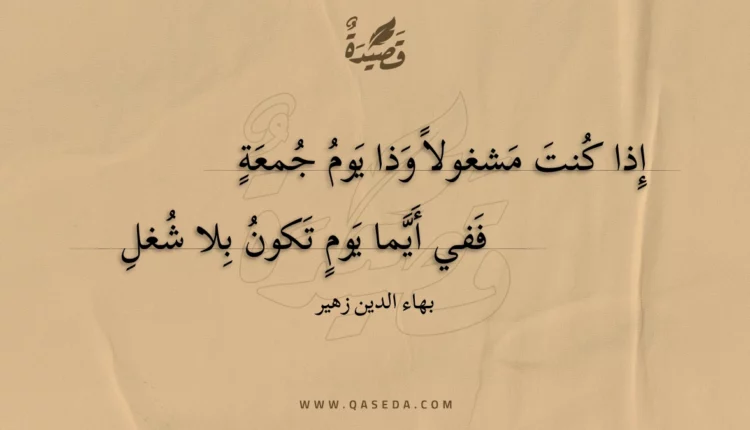 قَصِيْدَةٌ
إِذا كُنتَ مَشغولاً وَذا يَومُ جُمعَةٍ
فَفي أَيَّما يَومٍ تَكونُ بِلا شُغلِ
بهاء الدين زهير
WWW.QASEDA.COM